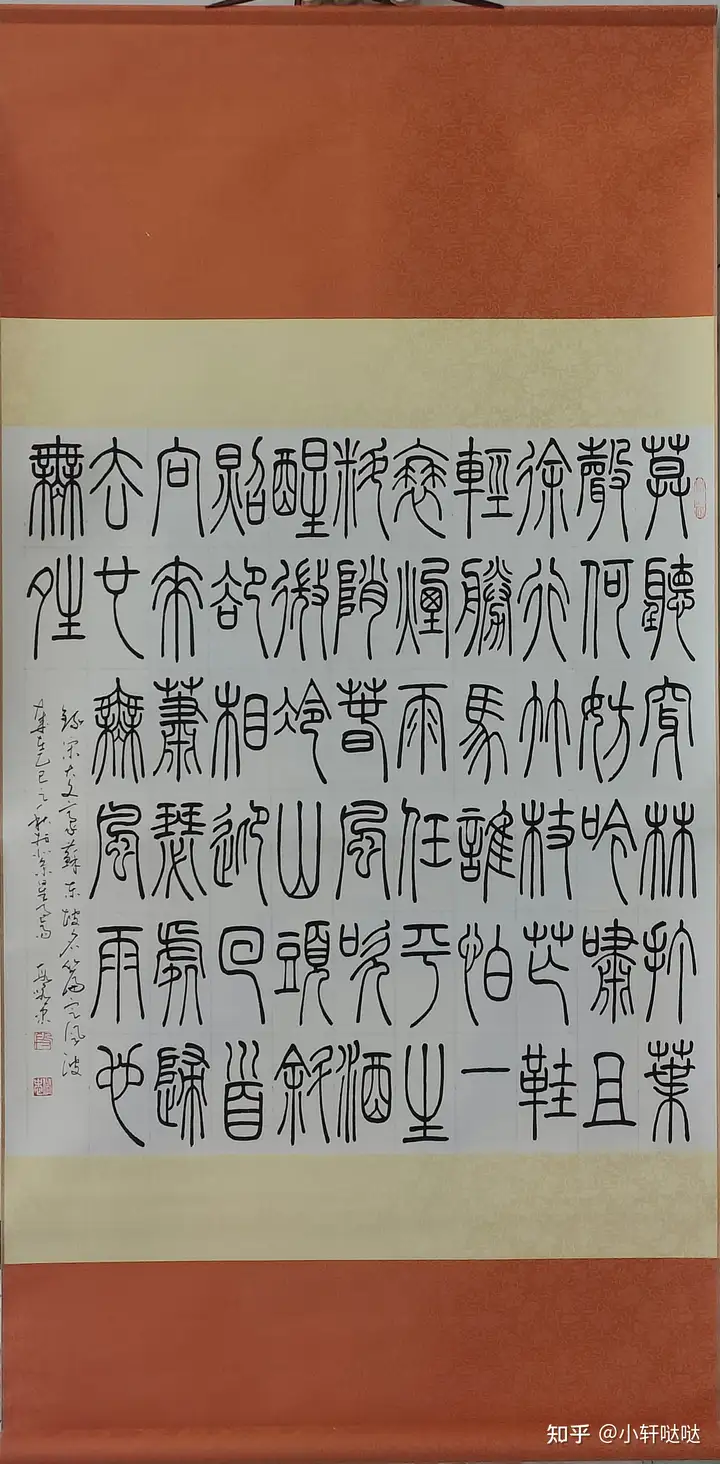 莫聽穿林打葉
聲何妨吟嘯且
徐行竹杖芒鞋
輕勝馬誰怕一
蓑煙雨任平生
料峭春風吹酒
醒微冷山頭斜
照卻相迎回首
向來蕭瑟處歸
去也無風雨也
無晴
錄宋大文豪蘇東坡名篇定風波
歲在乙巳之秋
知乎 @小轩哒哒